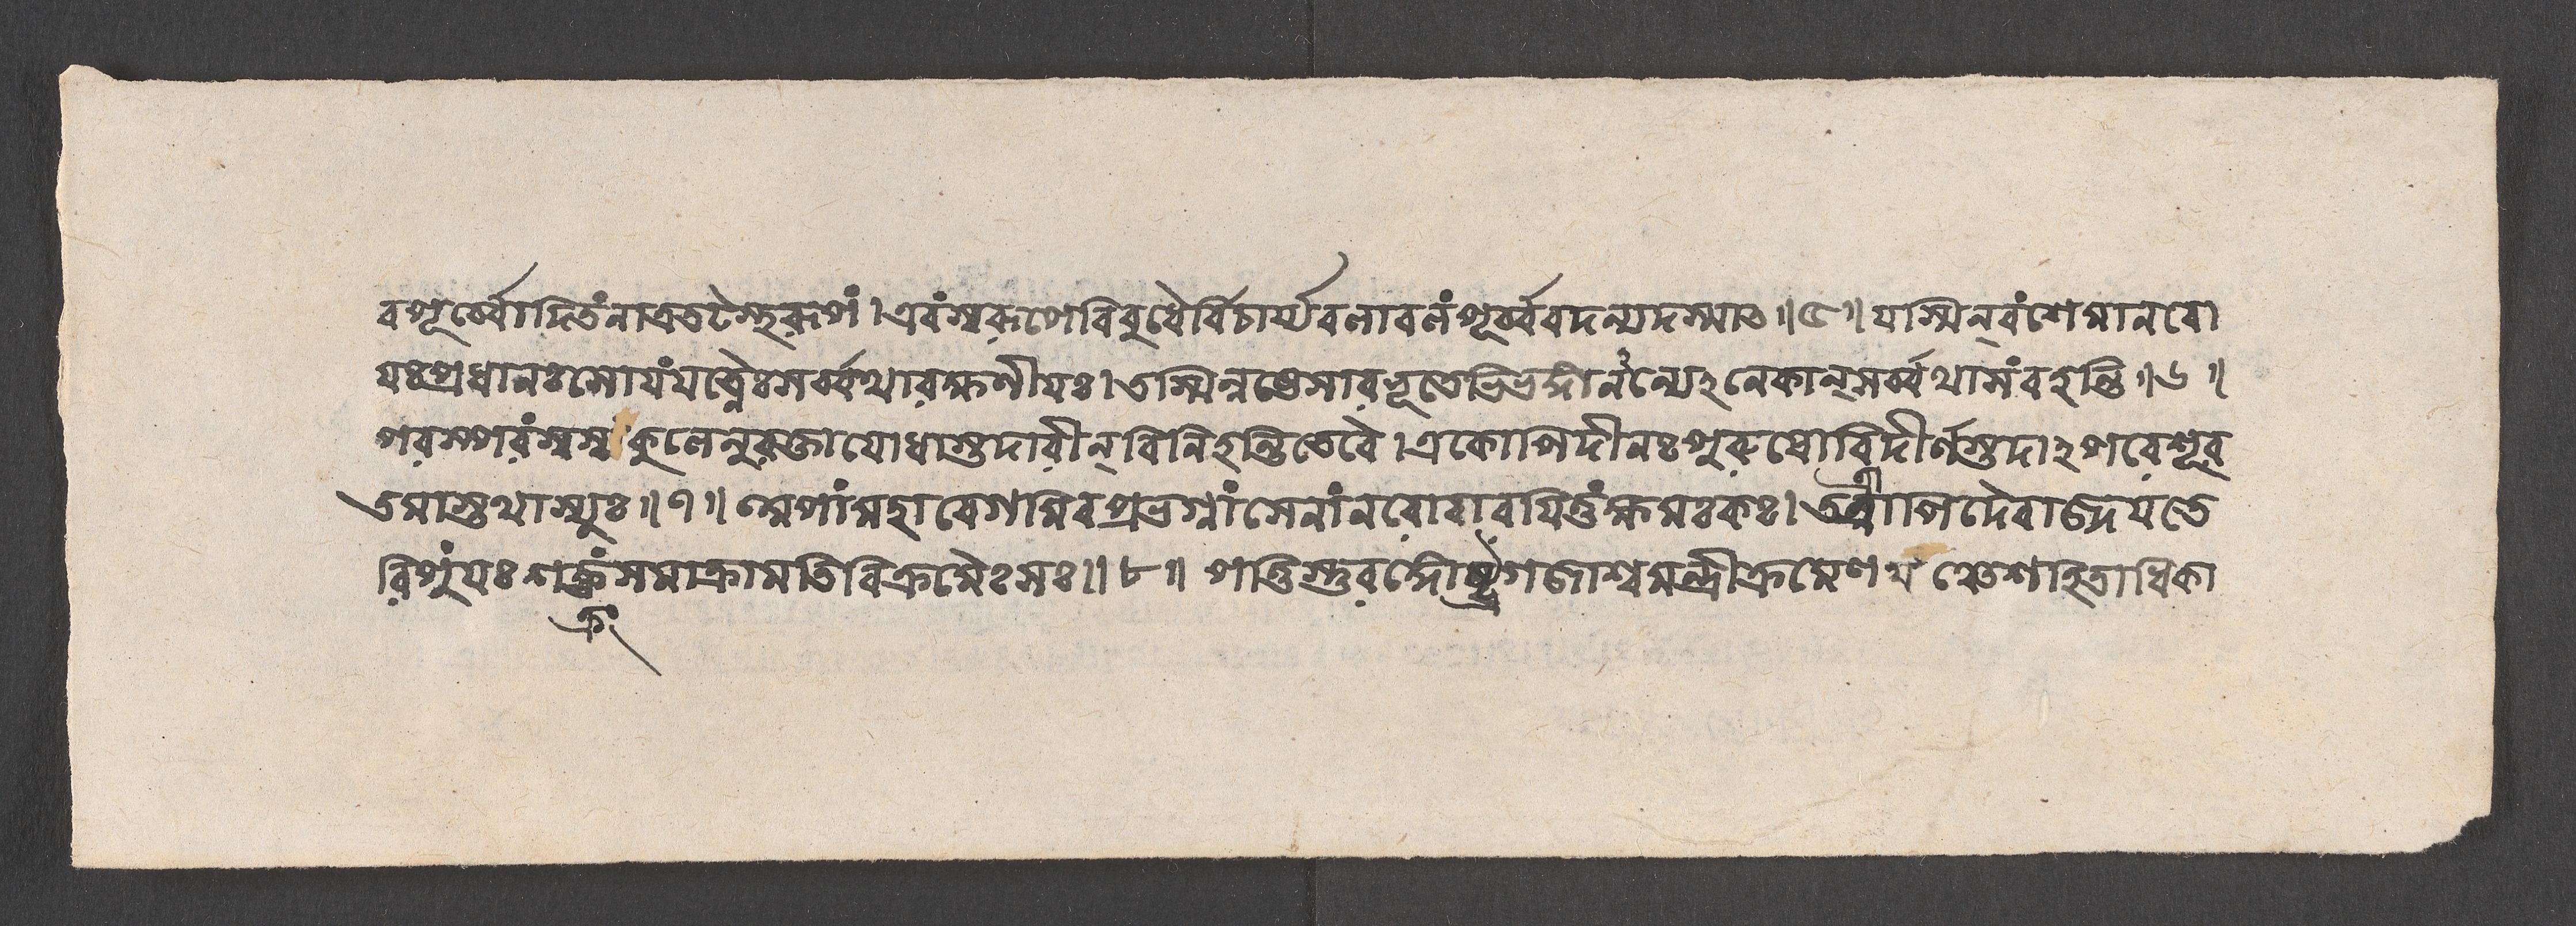 ব পূর্ব্বোদিতং নাত্র তটস্হরূপং। এবং স্বরূপে বিবুধৈর্বিচার্য্য বলাবলং পূর্ব্ববদন্যদস্মাৎ॥৫॥ যস্মিন্ বংশে মানবো
যঃ প্রধানঃ সোযং যত্নৈঃ সর্ব্বথা রক্ষণীযঃ। তস্মিন্নষ্টে সারভূতে ঽনেকান্ সর্ব্বথা সংবহন্তি॥৬॥
পরস্পরং স্বস্বকুলেনুরক্তা যোধাস্তদারীন্ বিনিহন্তি তে বৈ। একোপি দীনঃ পুরুষো বিদীর্ণস্তদাঽপরে শূর
তমাস্তথাস্যুঃ॥৭॥ মহাবেগামিব প্রভগ্নাং সেনাং নরো বারযিতুং ক্ষমঃ কঃ। তত্রাপি দৈবাজ্জযতে
রিপুং যঃ শক্রং সমাক্রামতি বিক্রমৈঃ সঃ॥৮॥ পত্তিস্তুরঙ্গোষ্ট্রগজাশ্বমন্ত্রী ক্রমেণ
ক্রং